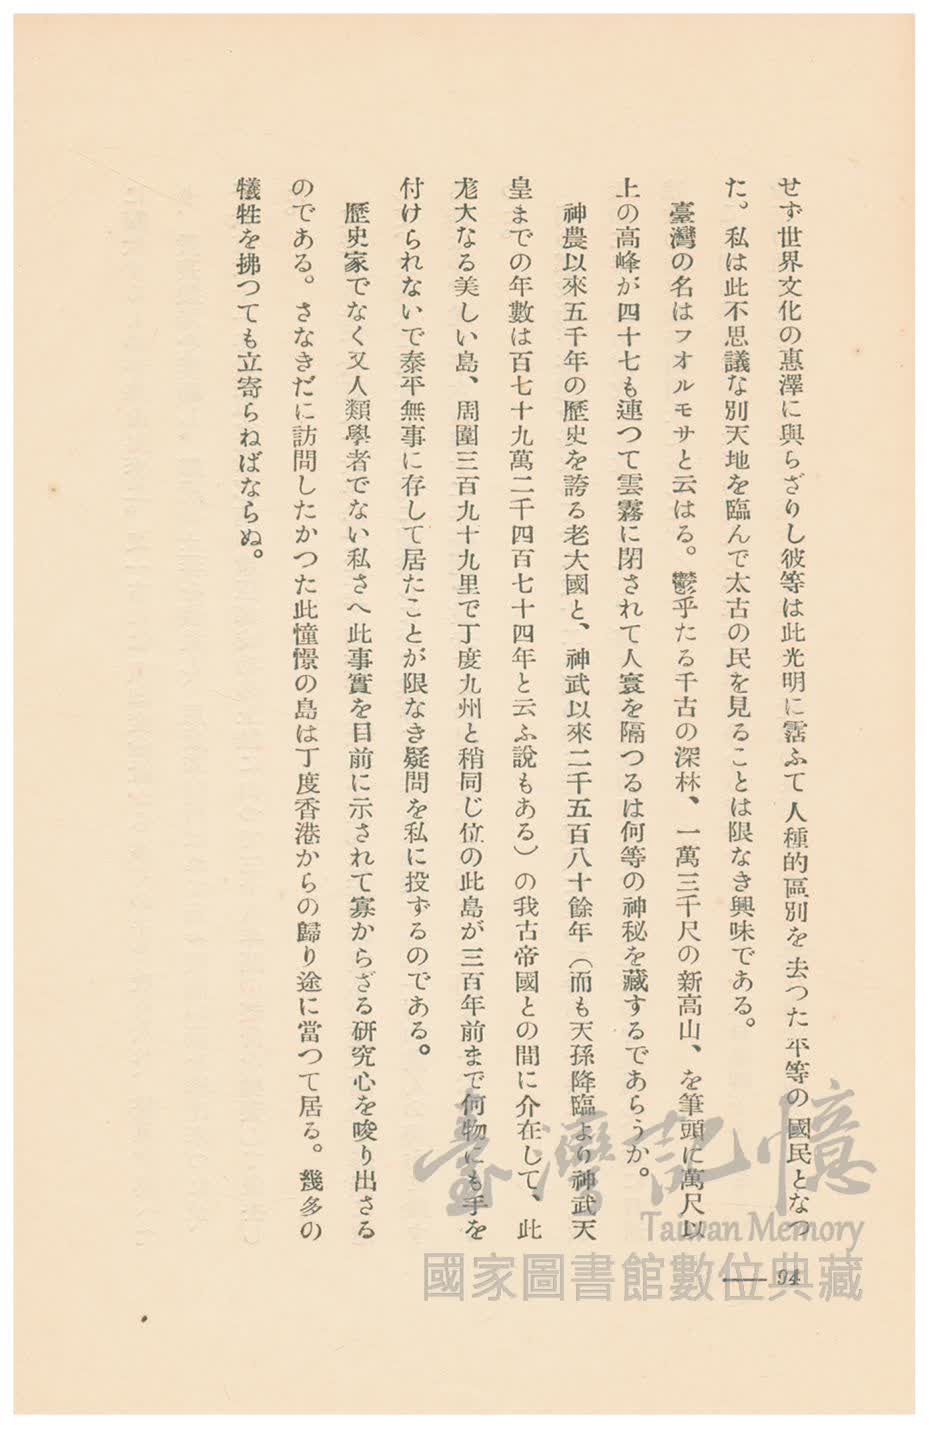 せず世界文化の惠澤に與らざりし彼等は此光明に霑ふて人種的區別を去つた平等の國民となつ
た。私は此不思議な別天地を臨んで太古の民を見ることは限なき興味である。
臺灣の名はフオルモサと云はる。鬱乎たる千古の深林、一萬三千尺の新高山、を筆頭に萬尺以
上の高峰が四十七も連つて雲霧に閉されて人寰を隔つるは何等の神秘を藏するであらうか。
神農以來五千年の歷史を誇る老大國と、神武以來二千五百八十餘年（而も天孫降臨より神武天
皇までの年數は百七十九萬二千四百七十四年と云ふ說もある）の我古帝國との間に介在して、此
尨大なる美しい島、周圍三百九十九里で丁度九州と稍同じ位の此島が三百年前まで何物にも手を
付けられないで泰平無事に存して居たことが限なき疑問を私に投ずるのである。
歷史家でなく又人類學者でない私さへ此事實を目前に示されて寡からざる研究心を唆り出さる
のである。さなきだに訪問したかつた此憧憬の島は丁度香港からの歸り途に當つて居る。幾多の
犧牲を拂つても立寄らねばならぬ。
94
臺灣記憶
Taiwan Memory
國家圖書館數位典藏